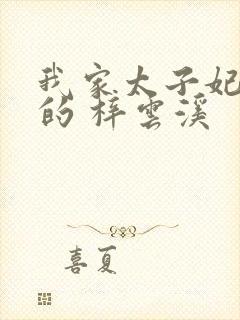 我家太子妃
的 梓雲溪
喜夏